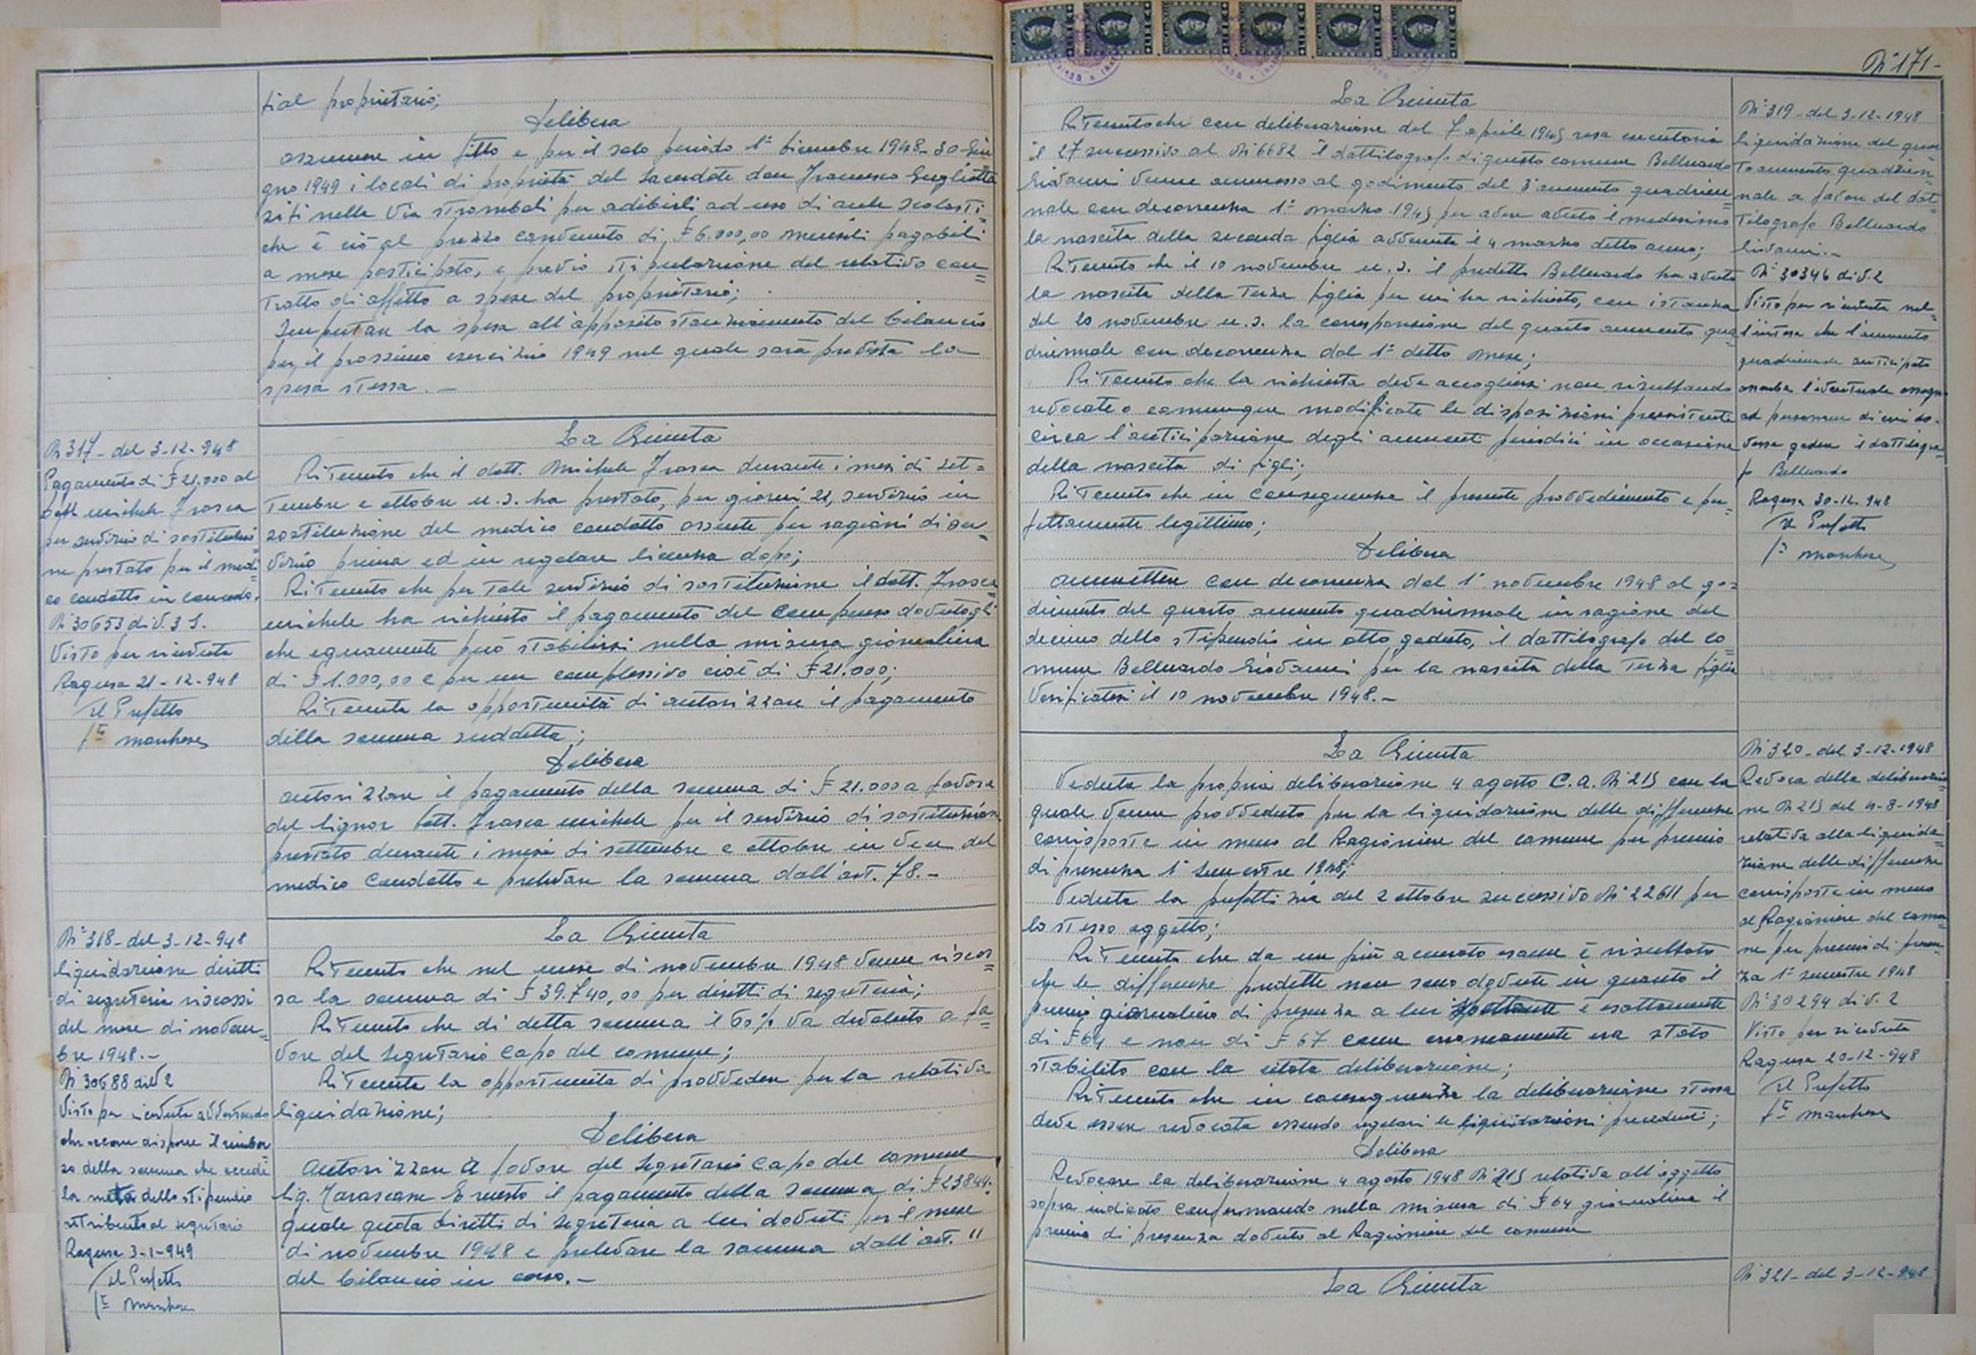 tial proprietario;
Delibera
assumere in fitto e per il solo periodo 1° dicembre 1948-30 Giu
gno 1949 i locali di proprietà del Sacerdote don Francesco Gugliotta
siti nella Via Stromboli per adibirli ad uso di aule scolasti-
che e ciò al prezzo convenuto di £ 6.000,00 mensili pagabili
a mese posticipato, e previo stipulazione del relativo con=
tratto di affitto a spese del proprietario;
Imputare la spesa all'apposito stanziamento del bilancio
per il prossimo esercizio 1949 nel quale sarà prevista la
spesa stessa.-
N 317- del 3-12-948
Pagamento di £ 21.000 al
Dott. Michele Frasca
per servizio di sostituzio=
ne prestato per il medi-
co condotto in congedo.
N 30653 div. 3 S.
Visto per ricevuta
Ragusa 21-12-948
Il Prefetto
fto manhese
La Giunta
Ritenuto che il dott. Michele Frasca durante i mesi di set=
tembre e ottobre u.s. ha prestato, per giorni 21, servizio in
sostituzione del medico condotto assente per ragioni di ser-
vizio prima ed in regolare licenza dopo;
Ritenuto che per tale servizio di sostituzione il dott. Frasca
Michele ha richiesto il pagamento del compenso dovutogli
che equamente può stabilirsi nella misura giornaliera
di £ 1.000,00 e per un complessivo cioè di £ 21.000;
Ritenuta la opportunità di autorizzare il pagamento
della somma suddetta;
Delibera
autorizzare il pagamento della somma di £ 21.000 a favore
del Signor Dott. Frasca Michele per il servizio di sostituzione
prestato durante i mesi di settembre e ottobre in vece del
medico Condotto e prelevare la somma dall'art. 78.-
N° 318- del 3-12-948
liquidazione diritti
di segreteria riscossi
del mese di novem-
bre 1948.-
N 30688 div 2
Visto per ricevuta avvertendo
che occorre disporre il rimbor
so della somma che eccede
la metà dello stipendio
attribuito al segretario
Ragusa 3-1-949
Il Prefetto
fto manhese
La Giunta
Ritenuto che nel mese di novembre 1948 venne riscos=
sa la somma di £ 39.740,00 per diritti di segreteria;
Ritenuto che di detta somma il 60% va devoluto a fa=
vore del Segretario Capo del comune;
Ritenuta la opportunità di provvedere per la relativa
liquidazione;
Delibera
Autorizzare a favore del Segretario Capo del comune
Sig. Tarascone Ernesto il pagamento della somma di £ 23844.
quale quota diritti di Segreteria a lui dovuti per il mese
di novembre 1948 e prelevare la somma dall'art. 11
del bilancio in corso.-
N° 171-
La Giunta
Ritenuto che con deliberazione del 7 aprile 1945 resa esecutoria
il 27 successivo al N° 6682 il dattilografo di questo comune Belluardo
Giovanni venne ammesso al godimento del 3° aumento quadrien=
nale con decorrenza 1° marzo 1945 per avere avuto il medesimo
la nascita della seconda figlia avvenuta il 4 marzo detto anno;
Ritenuto che il 10 novembre u.s. il predetto Belluardo ha avuto
la nascita della terza figlia per cui ha richiesto, con istanza
del 20 novembre u.s. la corresponsione del quarto aumento qua
driennale con decorrenza dal 1° detto mese;
Ritenuto che la richiesta deve accogliersi non risultando
revocate o comunque modificate le disposizioni preesistenti
circa l'anticipazione degli aumenti periodici in occasione
della nascita di figli;
Ritenuto che in conseguenza il presente provvedimento è per=
fettamente legittimo;
Delibera
ammettere con decorrenza dal 1° novembre 1948 al go=
dimento del quarto aumento quadriennale in ragione del
decimo dello stipendio in atto goduto, il dattilografo del co
mune Belluardo Giovanni per la nascita della terza figlia
verificatasi il 10 novembre 1948.-
N° 319- del 3-12-1948
liquidazione del quar
to aumento quadrien=
nale a favore del dat=
tilografo Belluardo
Giovanni.-
N° 30346 div. 2
Visto per ricevuta nel=
l'intesa che l'aumento
quadriennale anticipato
assorbe l'eventuale assegno
ad personam di cui do-
vesse godere il dattilogra-
fo Belluardo
Ragusa 30-12-948
Il Prefetto
fto manhese
La Giunta
Veduta la propria deliberazione 4 agosto c.a. N° 215 con la
quale venne provveduto per la liquidazione delle differenze
corrisposte in meno al Ragioniere del comune per premio
di presenza 1° Semestre 1948;
Veduta la prefettizia del 2 ottobre successivo N° 22611 per
lo stesso oggetto;
Ritenuto che da un più accurato esame è risultato
che le differenze predette non sono dovute in quanto il
premio giornaliero di presenza a lui spettante è esattamente
di £ 64 e non di £ 67 come erroneamente era stato
stabilito con la citata deliberazione;
Ritenuto che in conseguenza la deliberazione stessa
deve essere revocata essendo regolari le liquidazioni precedenti;
Delibera
Revocare la deliberazione 4 agosto 1948 N° 215 relativa all'oggetto
sopra indicato confermando nella misura di £ 64 giornaliere il
premio di presenza dovuto al Ragioniere del comune
N° 320- del 3-12-1948
Revoca della deliberazio=
ne N 215 del 4-8-1948
relativa alla liquida=
zione delle differenze
corrisposte in meno
al Ragioniere del comu
ne per premio di presen=
za 1° semestre 1948
N° 30294 div. 2
Visto per ricevuta
Ragusa 20-12-948
Il Prefetto
fto manhese
La Giunta
N° 321- del 3-12-948